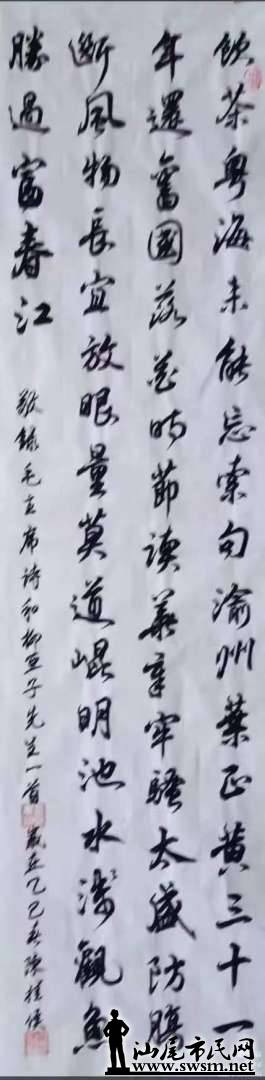 飲茶粵海未能忘索句渝州葉正黃三十一
年還舊國落花時節讀華章牢騷太盛防腸
斷風物長宜放眼量莫道崐明池水淺觀魚
勝過富春江
敬錄毛主席詩和柳亞子先生一首 歲在乙巳春陳桂僕
汕尾市民网
www.swsm.net